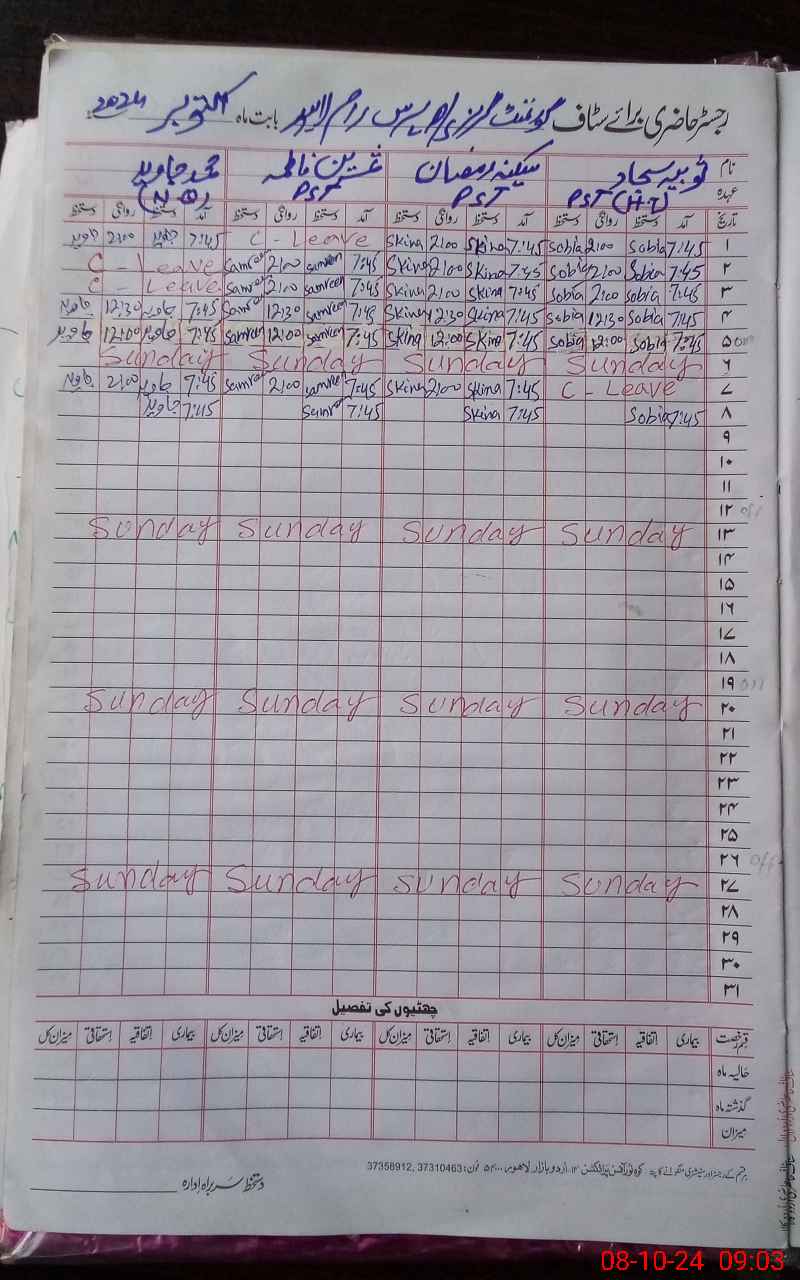 رجسٹر حاضری برائے سٹاف گورنمنٹ گرلز بابت ماہ اکتوبر 2024
نام ثوبیہ سجاد سکینہ رمضان ثمرین فاطمہ محمد جاوید
عہدہ PST (H.T) PST PST (N.Q)
تاریخ آمد دستخط روانگی دستخط آمد دستخط روانگی دستخط آمد دستخط روانگی دستخط آمد دستخط روانگی دستخط
۱ 7:45 Sobia 2:00 Sobia 7:45 Skina 2:00 Skina C - Leave 7:45 جاوید 2:00 جاوید
۲ 7:45 Sobia 2:00 Sobia 7:45 Skina 2:00 Skina 7:45 Samreen 2:00 Samreen C - Leave
۳ 7:45 Sobia 2:00 Sobia 7:45 Skina 2:00 Skina 7:45 Samreen 2:00 Samreen C - Leave
۴ 7:45 Sobia 12:30 Sobia 7:45 Skina 12:30 Skina 7:45 Samreen 12:30 Samreen 7:45 جاوید 12:30 جاوید
۵ 7:45 Sobia 12:00 Sobia 7:45 Skina 12:00 Skina 7:45 Samreen 12:00 Samreen 7:45 جاوید 12:00 جاوید
۶ Sunday Sunday Sunday Sunday
۷ C - Leave 7:45 Skina 2:00 Skina 7:45 Samreen 2:00 Samreen 7:45 جاوید 2:00 جاوید
۸ 7:45 Sobia 7:45 Skina 7:45 Samreen 7:45 جاوید
۹
۱۰
۱۱
۱۲ off
۱۳ Sunday Sunday Sunday Sunday
۱۴
۱۵
۱۶
۱۷
۱۸
۱۹
۲۰ Sunday Sunday Sunday Sunday
۲۱
۲۲
۲۳
۲۴
۲۵
۲۶ off
۲۷ Sunday Sunday Sunday Sunday
۲۸
۲۹
۳۰
۳۱
چھٹیوں کی تفصیل
قسم رخصت بیماری اتفاقیہ استحقاقی میزان کل بیماری اتفاقیہ استحقاقی میزان کل بیماری اتفاقیہ استحقاقی میزان کل بیماری اتفاقیہ استحقاقی میزان کل
حالیہ ماہ
گذشتہ ماہ
میزان
اردو بازار لاہور فون: 37310463, 37358912
دستخط سربراہ ادارہ
08-10-24 09:03